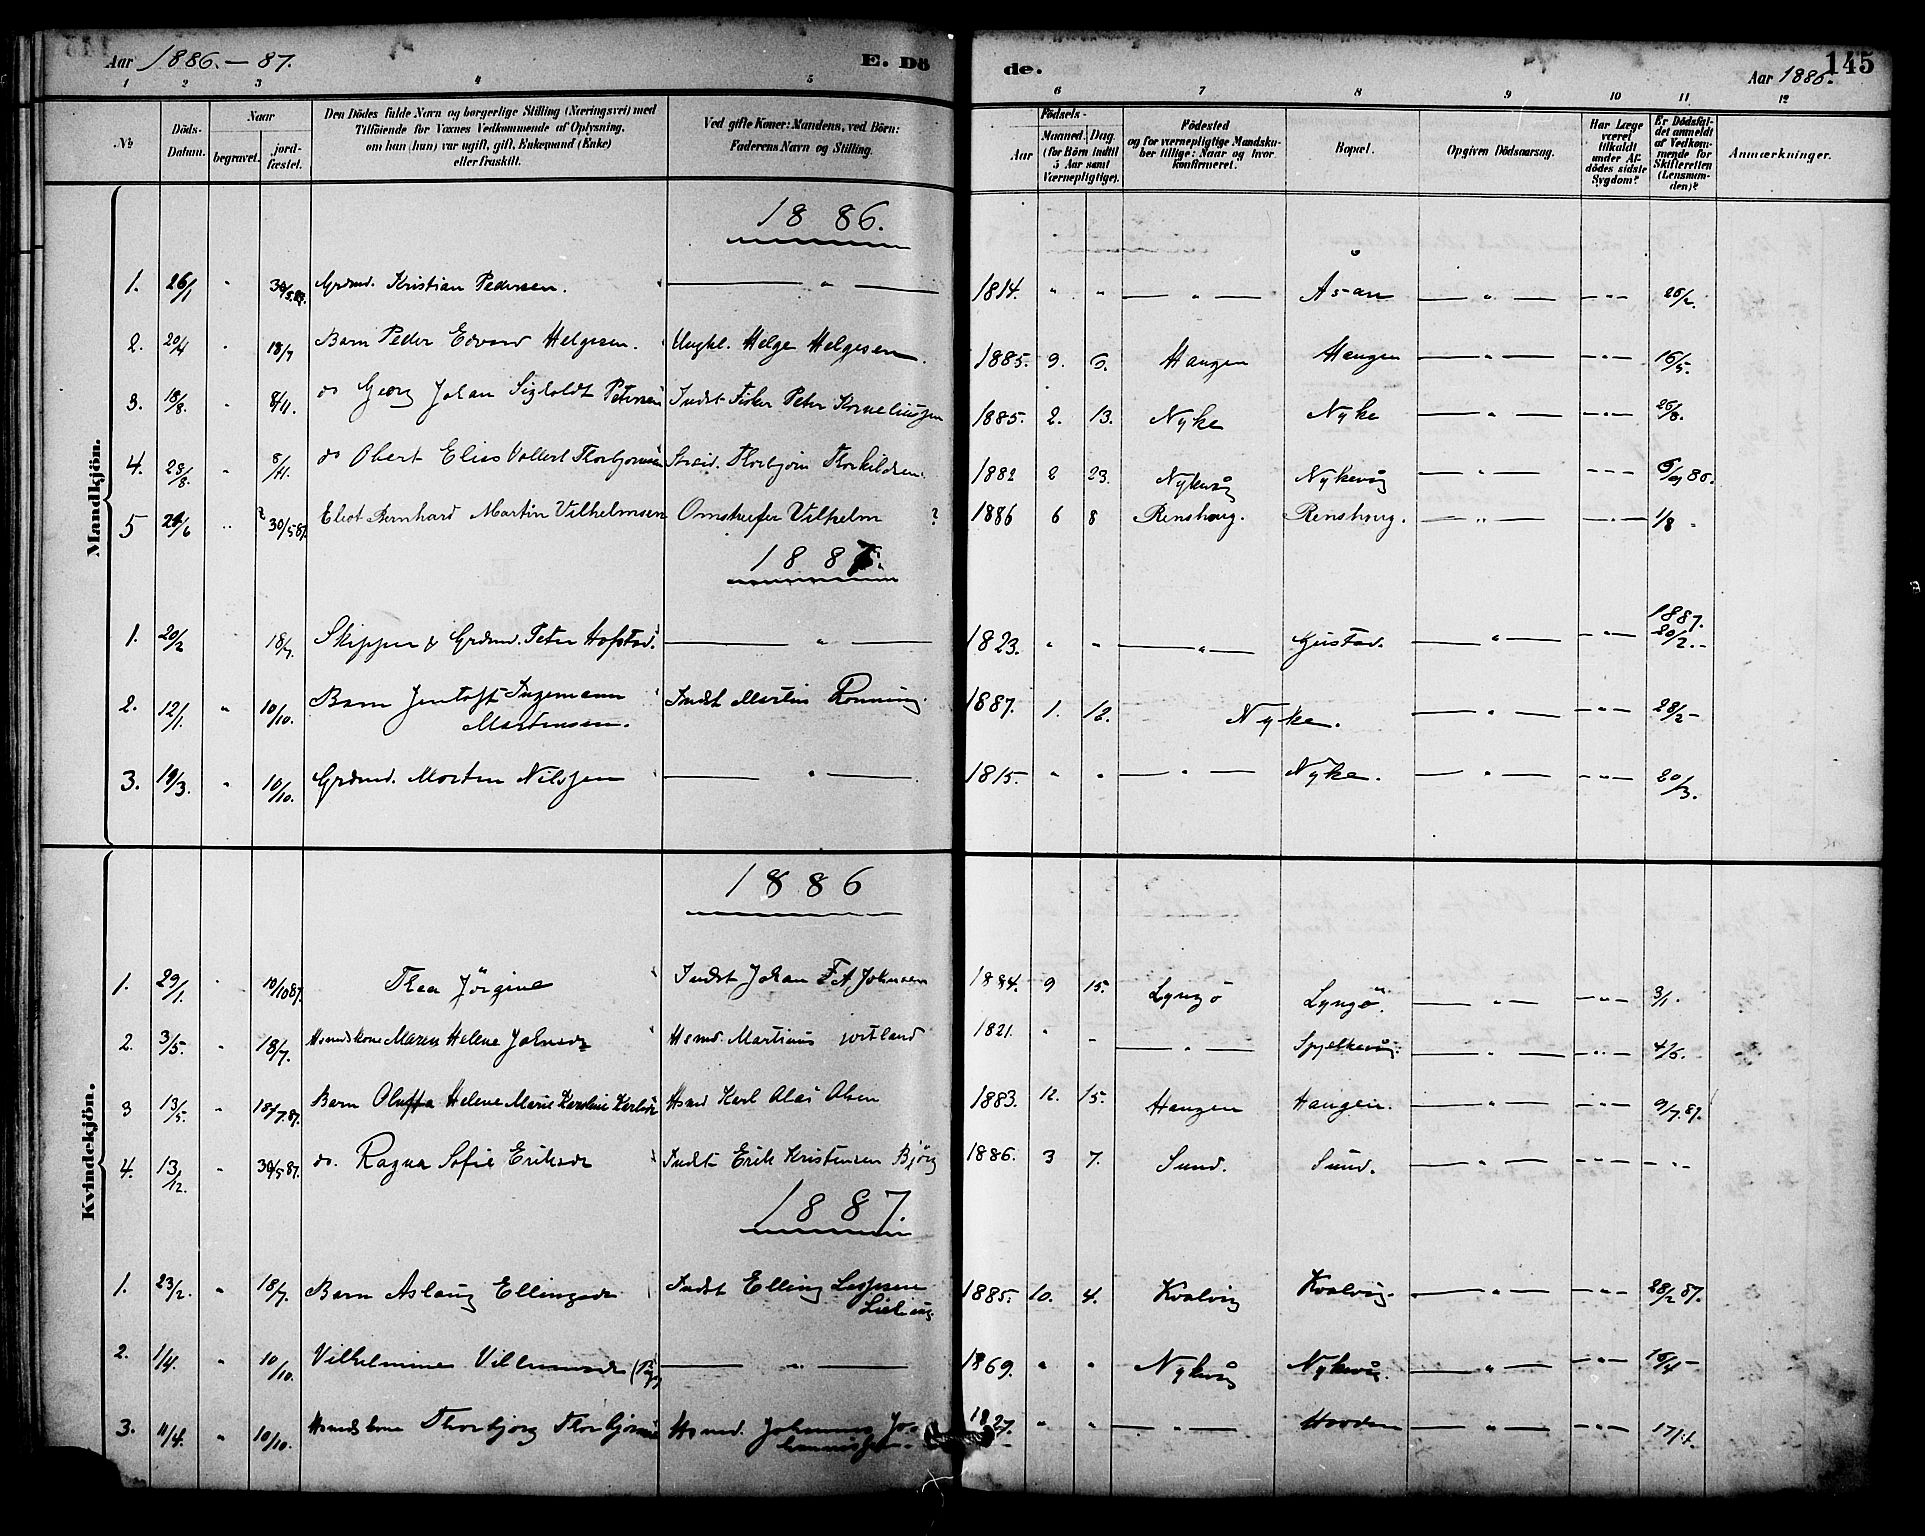 Aar 1886.-87. E. Dö
1 2 3 4 5
№
Döds-Datum.
Naar
begravet.
jord-fæstet.
Den Dödes fulde Navn og borgerlige Stilling (Næringsvei) med
Tilföiende for Voxnes Vedkommende af Oplysning,
om han (hun) var ugift, gift, Enkemand (Enke)
eller fraskilt.
Ved gifte Koner: Mandens, ved Börn:
Faderens Navn og Stilling.
de. Aar 1886. 145
6 7 8 9 10 11 12
Födsels-
Aar
Maaned. Dag.
(for Börn indtil
5 Aar samt
Værnepligtige).
Födested
og for værnepligtige Mandsku-
ber tillige: Naar og hvor
konfirmeret.
Bopæl.
Opgiven Dödsaarsag.
Har Læge
været
tilkaldt
under Af-
dödes sidste
Sygdom?
Er Dödsfal-
det anmeldt
af Vedkom-
mende for
Skifteretten
(Lensman-
den)?
Anmærkninger.
Mandkjön.
1886.
1. 26/1 " Grdmd. Kristian Pedersen. — " — 1814. " " — " — Åsan — " — — " — 26/2.
2. 20/4 " 18/7 Barn Peder Edvard Helgesen. Ungkl. Helge Helgesen. 1885. 9. 6. Haugen Haugen — " — — " — 16/5.
3. 18/8. " 8/11. do Georg Johan Sigholdt Petersen Indst Fisker Peter Korneliussen 1885. 2. 13. Nyke Nyke — " — — " — 26/8.
4. 28/8. " 8/11. do Obert Elias Vollert Thorbjørnsen Thorbjørn Thorkildsen 1882 2 23. Nykevåg Nykevåg — " — — " —
5 29/6 " 30/5 87. Eliot Bernhard Martin Vilhelmsen Omstreifer Vilhelm ? 1886 6 8 Renshaug. Renshaug. — " — — " — 1/8
1887.
1. 20/2 18/7. Skipper & Grdmd. Peter Hofstad. — " — 1823. " " — " — Gustad. — " — — " — 1887. 20/2.
2. 12/1. " 10/10. Barn Jentoft Ingemann
Martinsen. Indst Martin Rönning. 1887. 1. 12. Nyke. — " — — " — 28/2
3. 19/3. " 10/10. Grdmd. Morten Nilssen — " — 1815. " " — " — Nyke. — " — — " — 20/3.
Kvindekjön.
1886
1. 29/1. " 10/10 87. Thea Jörgine Indst Johan F A Johnsen 1884. 9 15. Lyngö Lyngö. — " — — " — 3/1.
2. 3/5. " 18/7. Hsmdskone Maren Helene Johnsdr Hsmd. Martinus Jortland 1821. " " — " — Spjelkevåg. — " — — " —
3 13/5. " 18/7 87. Barn Oluffa Helene Marie Karoline Karlsdr Hsmd Karl Olai Olsen 1883. 12. 15. Haugen Haugen. — " — — " — 9/7 87.
4. 13/12. " 30/5 87. do. Ragna Sofie Eriksdr Indst Erik Kristensen Bjørg 1886. 3 7. Sund. Sund. — " — — " — — " —
1887.
1. 23/2. " 18/7. Barn Aslaug Ellingsdr Indst Elling 1885. 10. 4. Kvalvig Kvalvig. — " — — " — 28/2 87.
2. 1/4. " 10/10. Vilhelmine Villumsdr — " — 1869. " " Nykvåg Nykvåg. — " — — " — 16/4
3. 11/4. " 10/10. Hsmdskone Thorbjørg Thorbjörnsdr Hsmd. Johannes Jo-
hannissen. 1827. " " — " — Hovden — " — — " — 17/4.